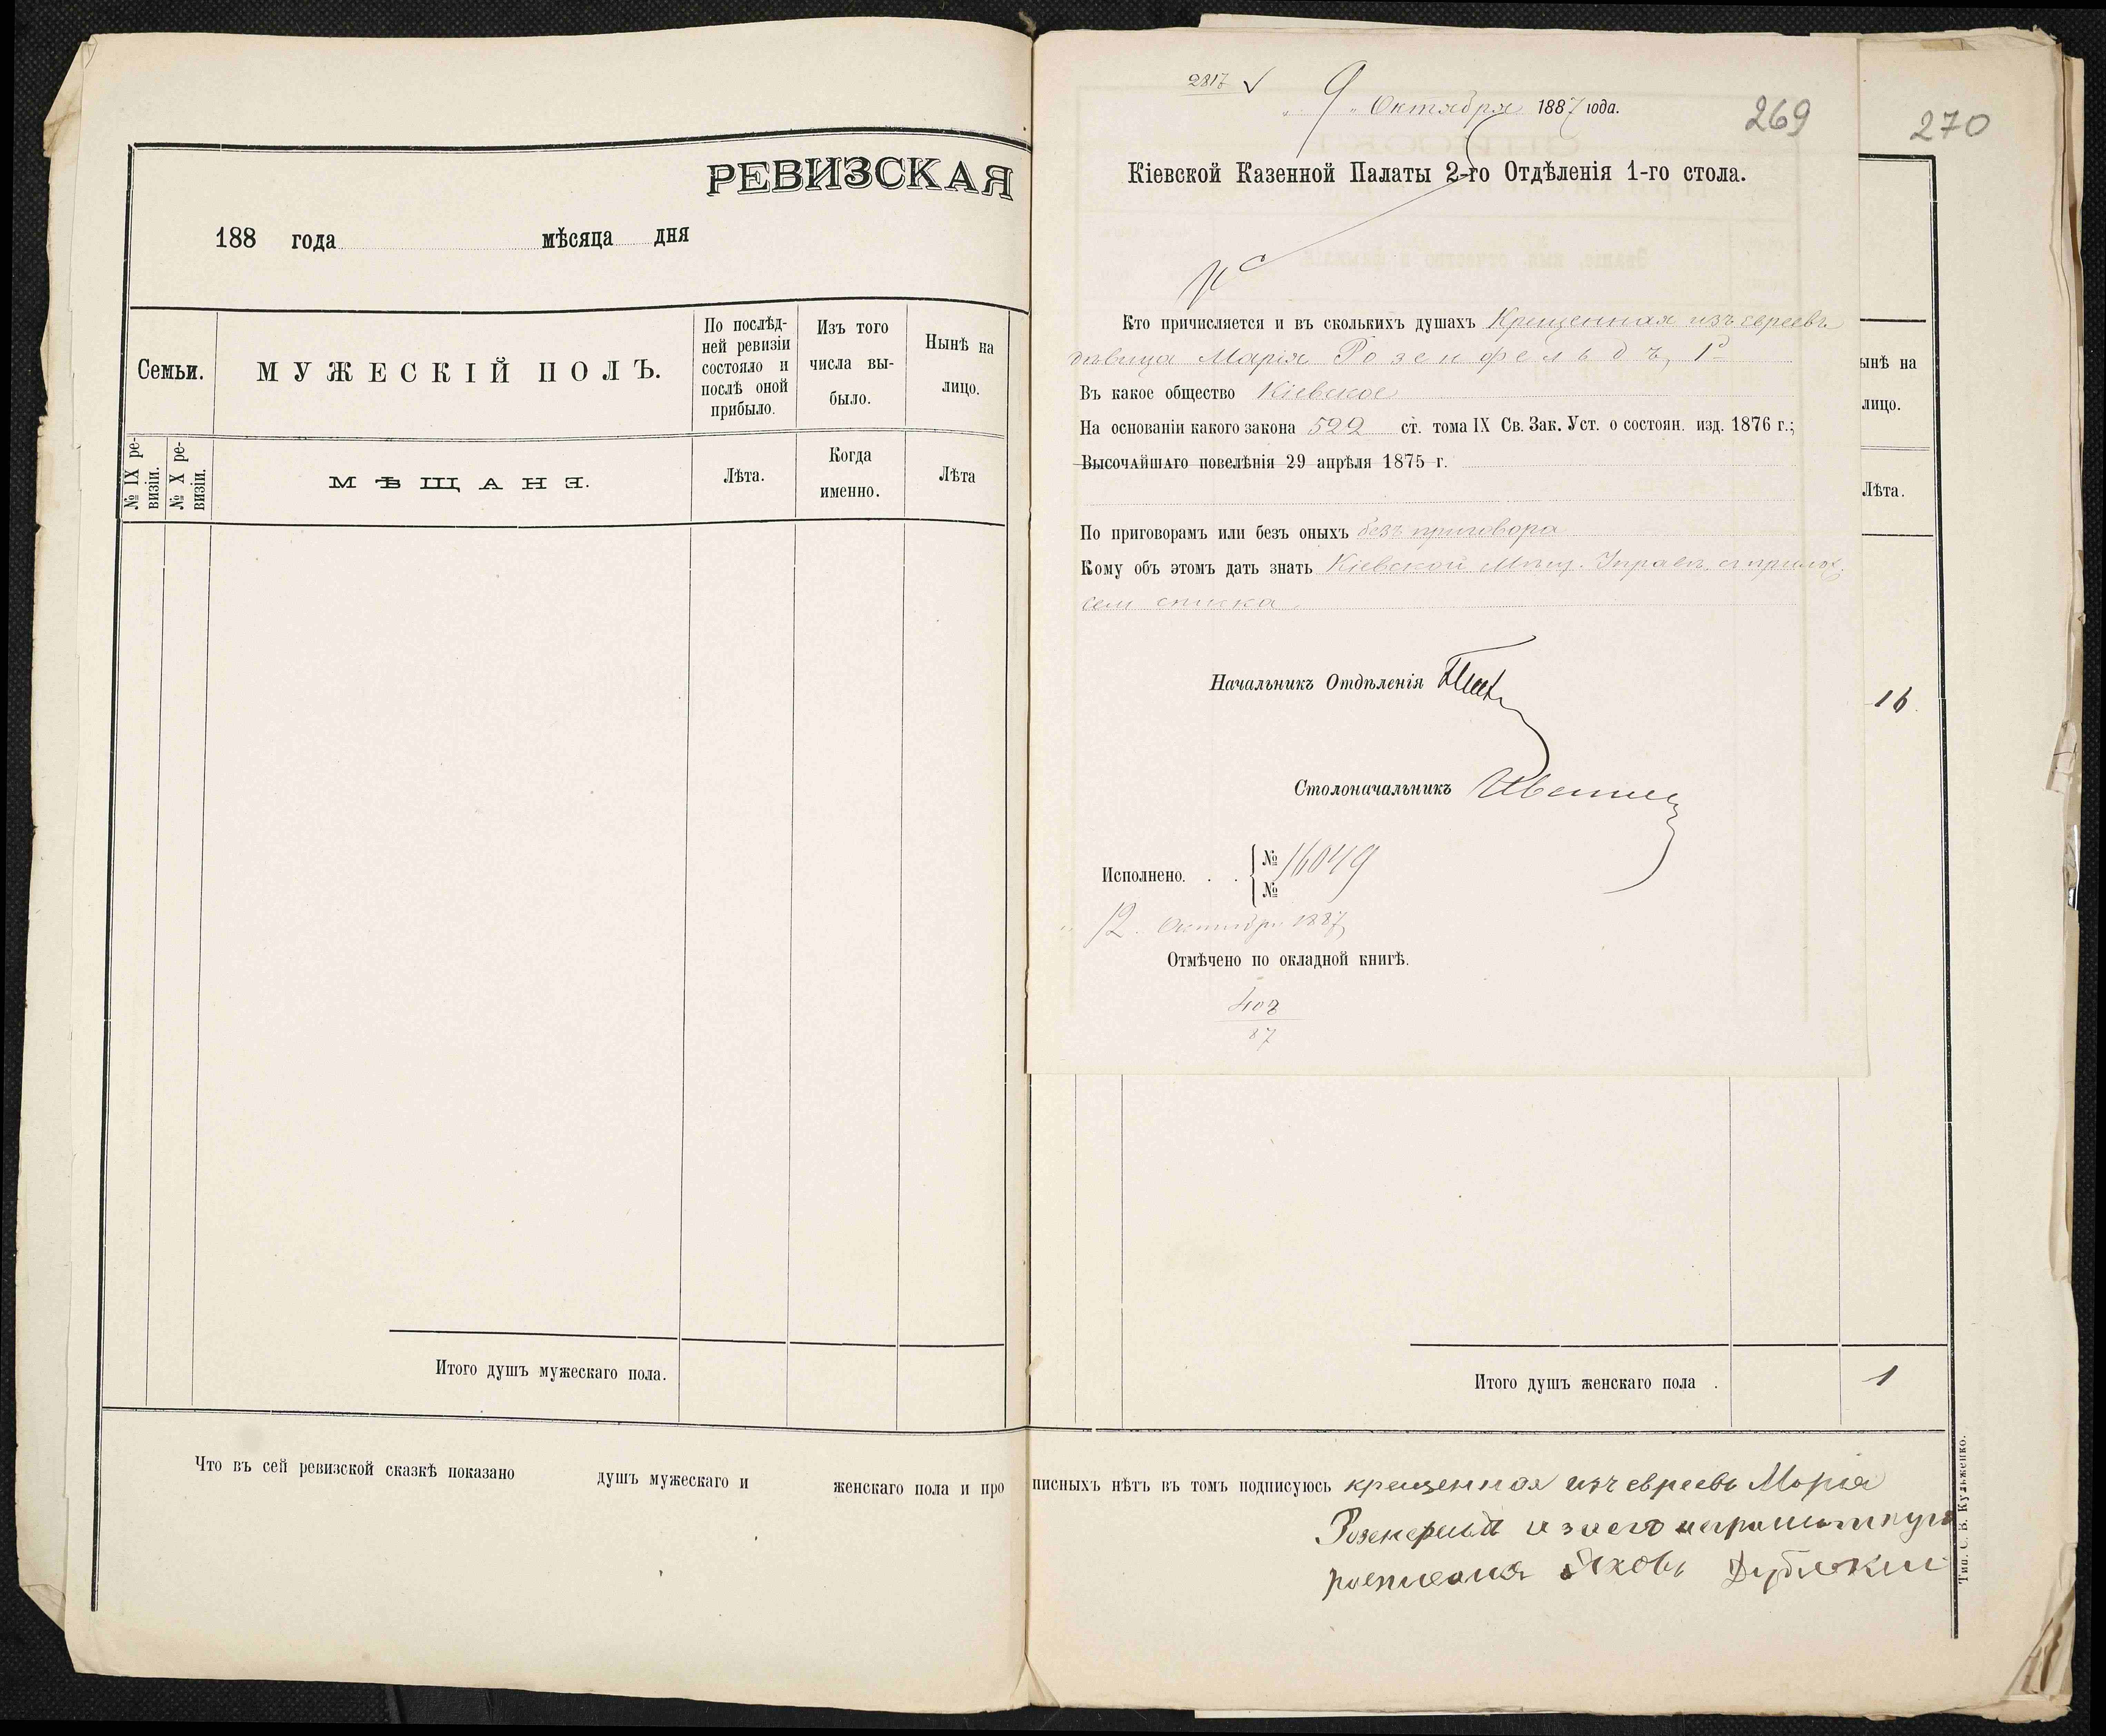 РЕВИЗСКАЯ
188 года мѣсяца дня
Семьи.
МУЖЕСКІЙ ПОЛЪ.
По послѣд-
ней ревизіи
состояло и
послѣ оной
прибыло.
Изъ того
числа вы-
было.
Нынѣ на
лицо.
№ IX ре-
визіи.
№ X ре-
визіи.
МѢЩАНЕ.
Лѣта.
Когда
именно.
Лѣта
Итого душъ мужескаго пола.
Что въ сей ревизской сказкѣ показано душъ мужескаго и женскаго пола и про
2817
9 Октября 1887 года.
269
Кіевской Казенной Палаты 2-го Отдѣленія 1-го стола.
Кто причисляется и въ сколькихъ душахъ Крещенная изъ евреевъ
дѣвица Марія Розенфельдъ, 1
Въ какое общество Кіевское
На основаніи какого закона 522 ст. тома IX Св. Зак. Уст. о состоян. изд. 1876 г.;
Высочайшаго повелѣнія 29 апрѣля 1875 г.
По приговорамъ или безъ оныхъ безъ приговора
Кому объ этомъ дать знать Кіевской Мѣщ. Управѣ, съ прилож.
сем списка.
Начальникъ Отдѣленія
Столоначальникъ
Исполнено. . . № 16049
№
12 Октября 1887
Отмѣчено по окладной книгѣ.
408
87
270
ынѣ на
лицо.
Лѣта.
16
Итого душъ женскаго пола . 1
писныхъ нѣтъ въ томъ подписуюсь крещенная изъ евреевъ Марія
Розенфельд а за его неграмотную
Яковъ
Тип. С. В. Кульженко.